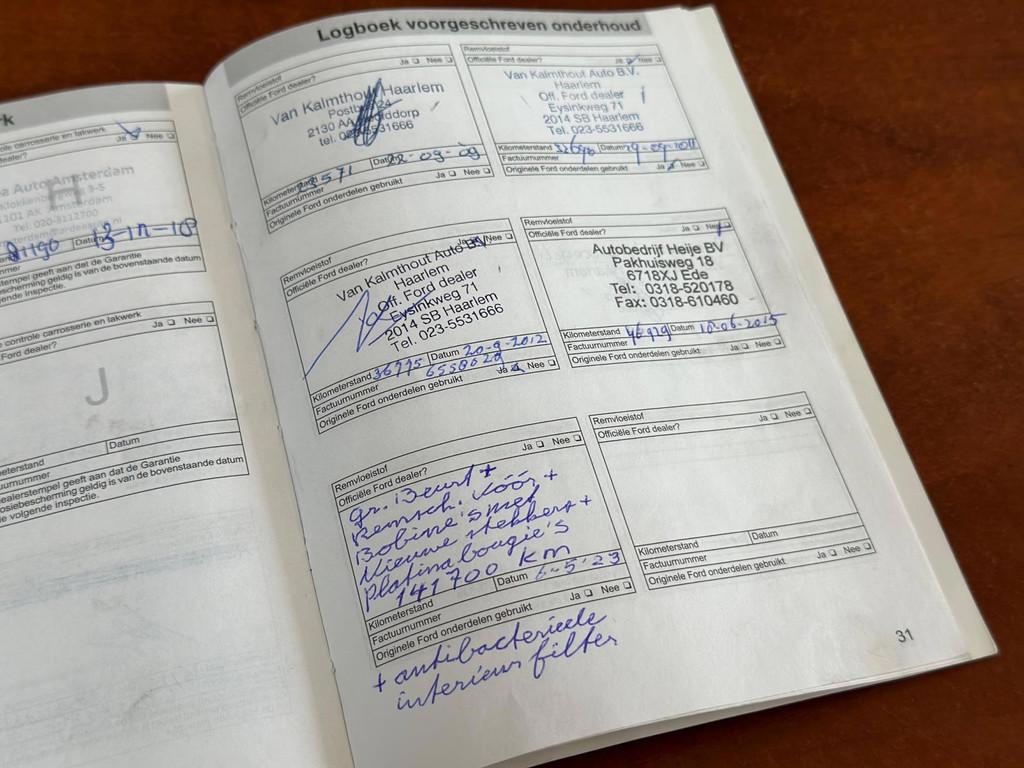 rk
controle carrosserie en lakwerk
Ja Nee
dealer?
H
Auto Amsterdam
Klokkenbergweg 3-5
1101 AK Amsterdam
Tel: 020-3112700
Datum 13-11-18
mmer
tempel geeft aan dat de Garantie
scherming geldig is van de bovenstaande datum
gende inspectie.
controle carrosserie en lakwerk
Ja Nee
Ford dealer?
J
Datum
meterstand
uurnummer
ealerstempel geeft aan dat de Garantie
osiebescherming geldig is van de bovenstaande datum
e volgende inspectie.
Logboek voorgeschreven onderhoud
Remvloeistof
Ja Nee
Officiële Ford dealer?
Van Kalmthout Haarlem
2130 AA
tel. 023-5531666
Kilometerstand 23571 Datum 22-09-09
Factuurnummer
Originele Ford onderdelen gebruikt Ja Nee
Remvloeistof
Ja Nee
Officiële Ford dealer?
Van Kalmthout Auto B.V.
Haarlem
Off. Ford dealer
Eysinkweg 71
2014 SB Haarlem
Tel. 023-5531666
Kilometerstand Datum 19-09-2011
Factuurnummer
Originele Ford onderdelen gebruikt Ja Nee
Remvloeistof
Ja Nee
Officiële Ford dealer?
Van Kalmthout Auto BV
Haarlem
Off. Ford dealer
Eysinkweg 71
2014 SB Haarlem
Tel. 023-5531666
Kilometerstand 36775 Datum 20-9-2012
Factuurnummer 6558029
Originele Ford onderdelen gebruikt Ja Nee
Remvloeistof
Ja Nee
Officiële Ford dealer?
Autobedrijf Heije BV
Pakhuisweg 18
6718XJ Ede
Tel: 0318-520178
Fax: 0318-610460
Kilometerstand 46929 Datum 10-06-2015
Factuurnummer
Originele Ford onderdelen gebruikt Ja Nee
Remvloeistof
Ja Nee
Officiële Ford dealer?
gr. Beurt +
Remsch. vóór +
Bobine's met
Nieuwe stekkers +
platina bougie's
141700 km
Kilometerstand Datum 6-5-'23
Factuurnummer
Originele Ford onderdelen gebruikt Ja Nee
+ antibacterieele
interieur filter
Remvloeistof
Ja Nee
Officiële Ford dealer?
Kilometerstand Datum
Factuurnummer
Originele Ford onderdelen gebruikt Ja Nee
31